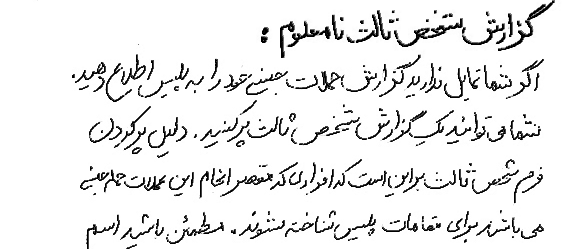 گزارش شخص ثالث نامعلوم :
اگر شما تمایل ندارید گزارش حملات جنسی خود را به پلیس اطلاع دهید.
شما می توانید یک گزارش شخص ثالث پر کنید. دلیل پر کردن
فرم شخص ثالث براین است که افرادی که مقصر انجام این عملات حمله جنسی
می باشند برای مقامات پلیس شناخته بشوند. مطمئن باشید اسم